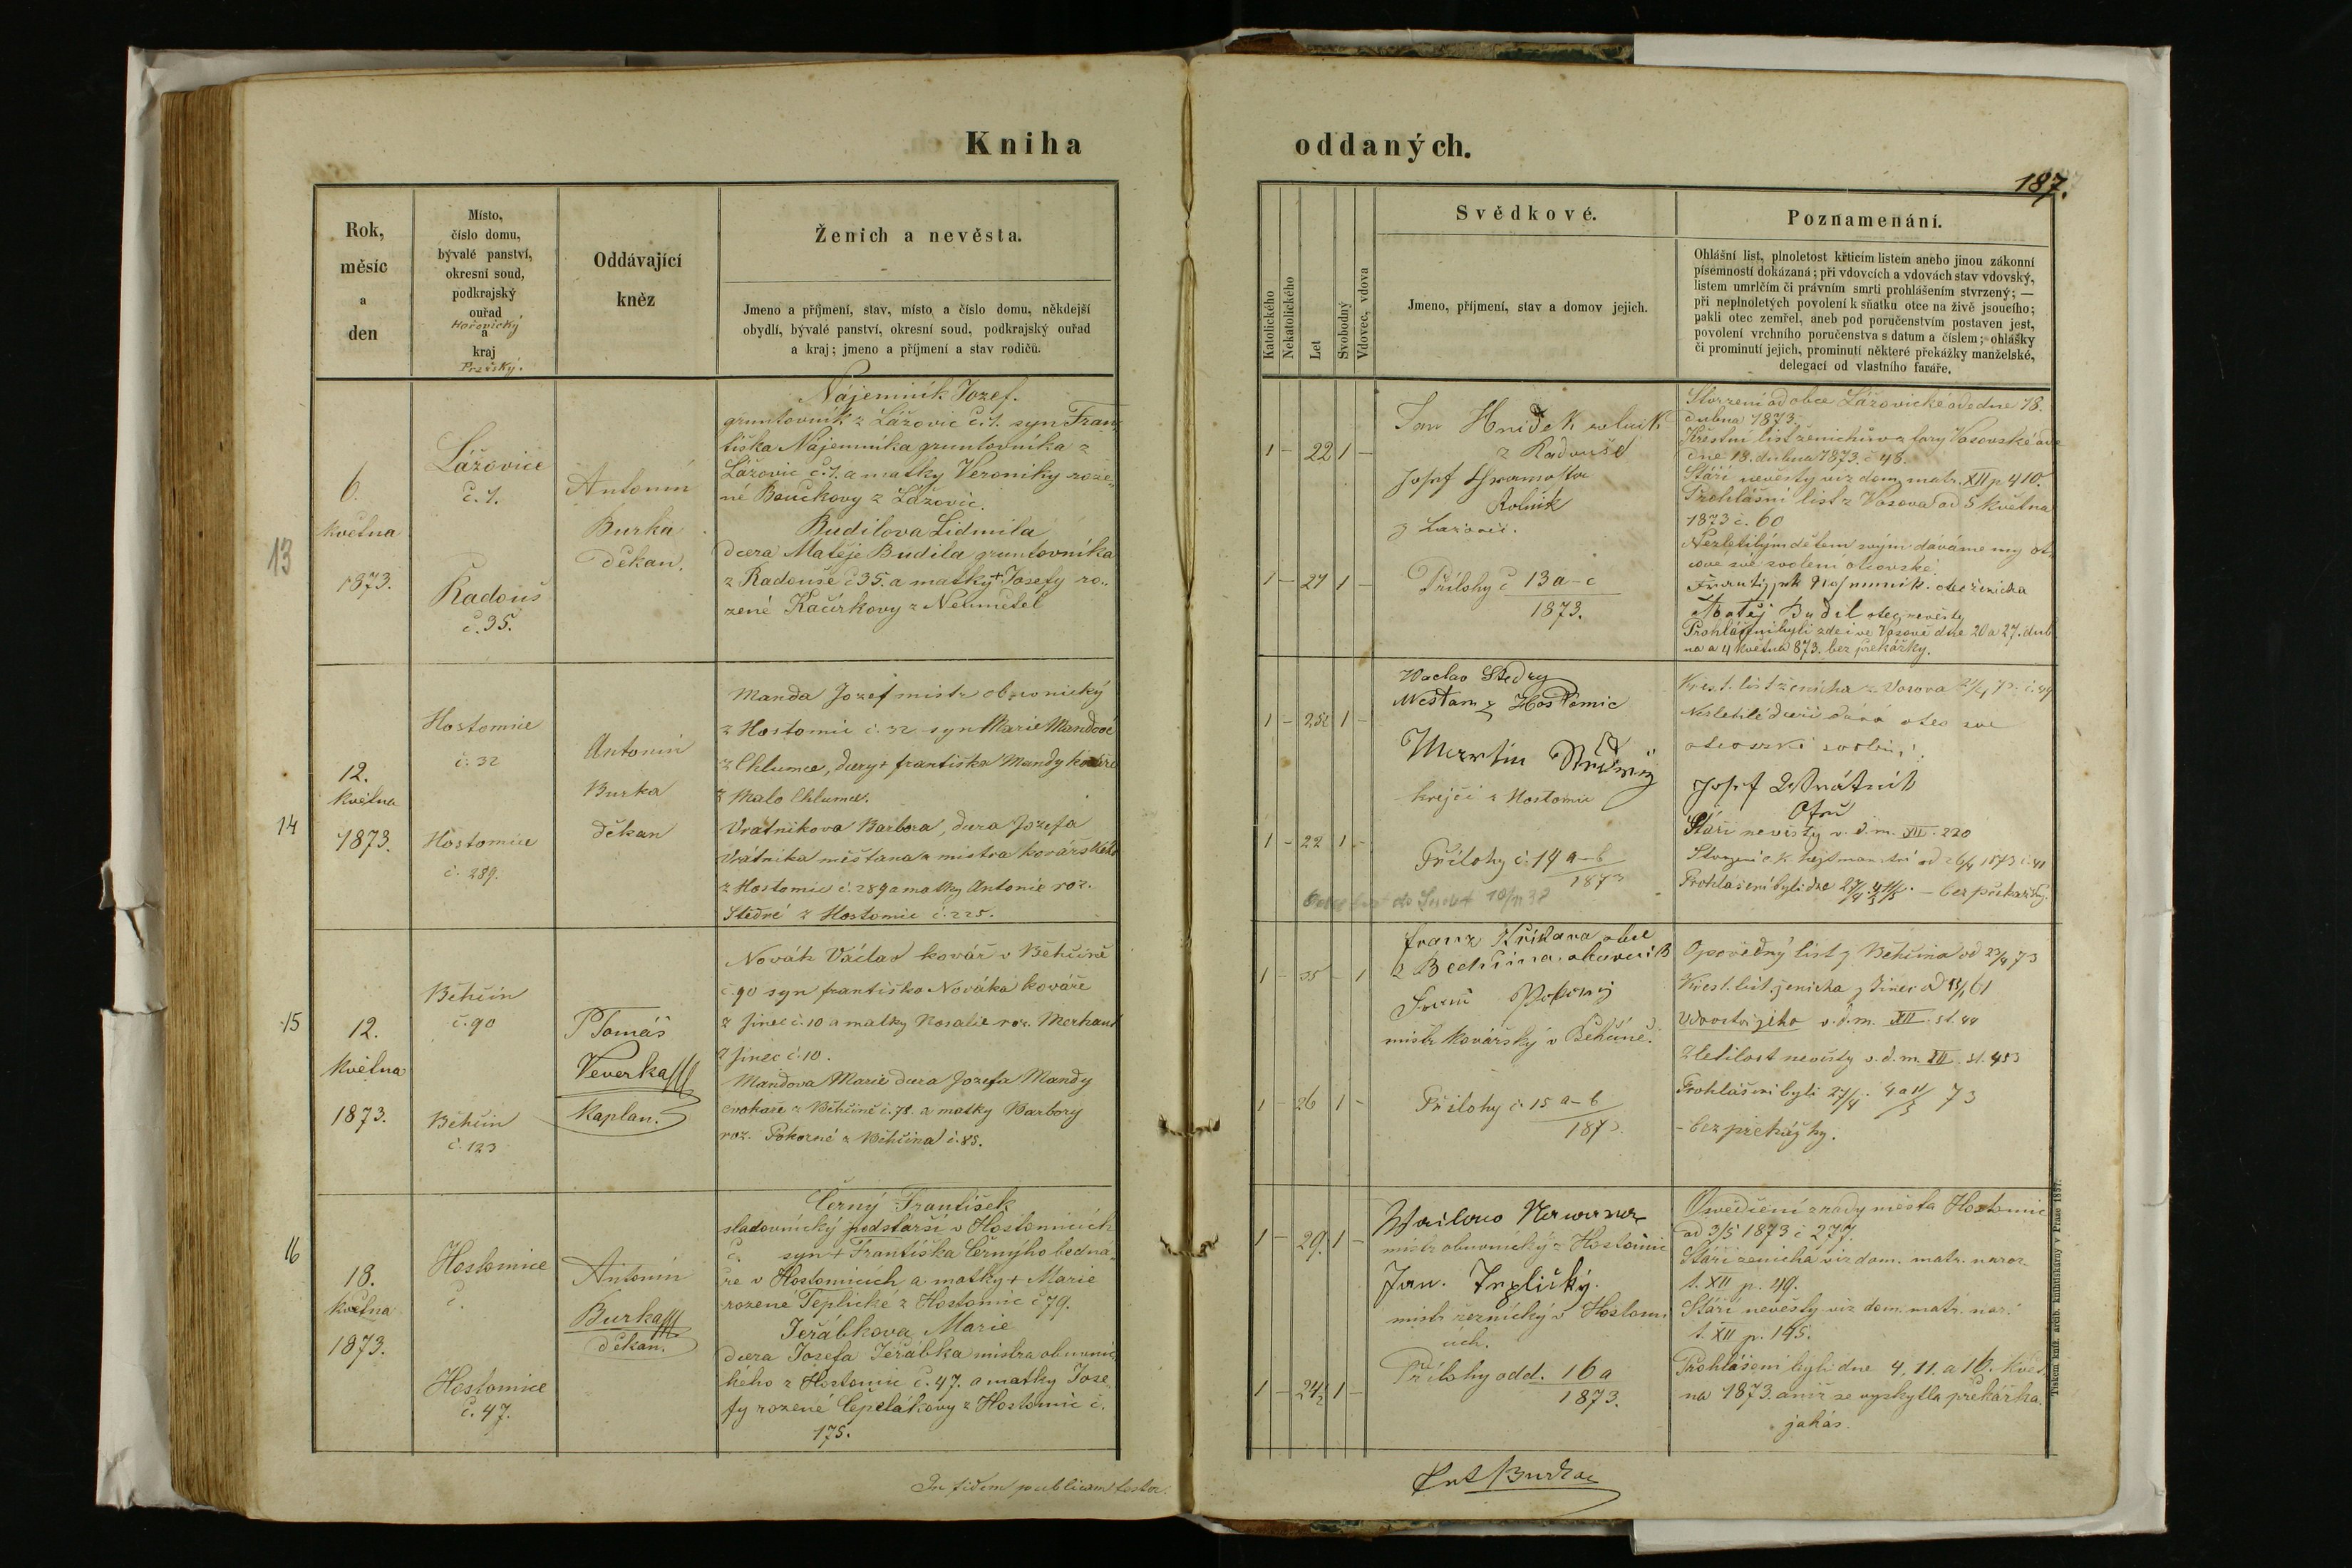 Kniha
oddaných.
187.
Rok,
měsíc
a
den
Místo,
číslo domu,
bývalé panství,
okresní soud,
podkrajský
ouřad
Hořovický
a
kraj
Pražský.
Oddávající
kněz
Ženich a nevěsta.
Jmeno a příjmení, stav, místo a číslo domu, někdejší
obydlí, bývalé panství, okresní soud, podkrajský ouřad
a kraj; jmeno a příjmení a stav rodičů.
Katolického
Nekatolického
Let
Svobodný
Vdovec, vdova
Svědkové.
Jmeno, příjmení, stav a domov jejich.
Poznamenání.
Ohlášní list, plnoletost křticím listem anebo jinou zákonní
písemností dokázaná; při vdovcích a vdovách stav vdovský,
listem umrlčím či právním smrti prohlášením stvrzený; —
při neplnoletých povolení k sňatku otce na živě jsoucího;
pakli otec zemřel, aneb pod poručenstvím postaven jest,
povolení vrchního poručenstva s datum a číslem; ohlášky
či prominutí jejich, prominutí některé překážky manželské,
delegací od vlastního faráře.
13
6.
května
1873.
Lážovice
č. 1.
Radouš
č. 35.
Antonín
Burka
děkan.
Nájemník Jozef.
gruntovník z Lážovic č. 1. syn Fran-
tiška Nájemníka gruntovníka z
Lážovic č. 1. a matky Veroniky roze-
né Boučkovy z Lážovic.
Budilova Lidmila
dcera Matěje Budila gruntovníka
z Radouše č 35. a matky + Josefy ro..
zené Kačírkovy z Neumětel
1 – 22 1 –
1 – 21 1 –
Jan Hnídek rolník
z Radouše
Josef
Rolník
z Lazovic.
Přílohy č 13 a–c
1873.
Stvrzení od obce Lážovické ode dne 18.
dubna 1873.
Křestní list ženichův z fary Vosovské ode
dne 18. dubna 1873. č 48.
Stáří nevěsty viz dom. matr. XII p 410.
Prohlášní list z Vosova od 5 května
1873 č. 60
Nezletilým dětem svým dáváme my ot-
cové své svolení otcovské.
otec ženicha
Matěj Budil otec nevěsty
Prohlášeni byli zde i ve Vosově dne 20 a 27. dub-
na a 4 května 873. bez překážky.
14
12.
května
1873.
Hostomice
č. 32
Hostomice
č. 289.
Antonín
Burka
děkan
Manda Jozef mistr obuvnický
z Hostomic č. 32 syn Marie Mandové
z Chlumce, dcery + františka Mandy kováře
z Malo Chlumce.
Vrátnikova Barbora, dcera Jozefa
Vrátnika měšťana a mistra kovářského
z Hostomic č. 289 a matky Antonie roz.
Štědré z Hostomic č. 225.
1 – 25 1 –
1 – 22 1 –
Waclav Štědry
Mešťan z Hostomic
krejčí z Hostomic
Přílohy č. 14 a–b
1873
Křest. list ženicha z Vosova č. 49
Nezletilé dceři dává otec své
otcovské svolení:
Josef Wrátnik
Stáří nevěsty v. d. m. XII. 220
Prohlášeni byli dne 27/4 4/5 11/5. – bez překažky.
15
12.
května
1873.
Běhčín
č. 90
Běhčín
č. 123
P Tomáš
Veverka
Kaplan.
Novák Václav kovář v Běhčíně
č 90 syn františka Nováka kováře
z Jinec č. 10 a matky Rosalie roz. Merhaut
z Jinec č. 10.
Mandova Marie dcera Jozefa Mandy
cvokaře z Běhčíně č. 78. a matky Barbory
roz. Pokorné z Běhčína č. 85.
1 – 35 – 1
1 – 26 1 –
franz
z Bechčina.
mistr kovářský v Běhčíně.
Přílohy č. 15 a–b
1873.
Opovědný list z Běhčína od 23/4 73
Křest. list. ženicha z Jinec
Vdovství jeho v. d. m. XII. st. 44
Zletilost nevěsty v. d. m. XII. st. 453
Prohlášeni byli 27/4. 4 a 11/5 73
– bez překážky.
16
18.
května
1873.
Hostomice
č.
Hostomice
č. 47.
Antonín
Burka
děkan.
Černý František
sladovnický podstarší v Hostomicích
č. syn + Františka Černýho bedná-
ře v Hostomicích a matky + Marie
rozené Teplické z Hostomic č 79.
Jeřábkova Marie
dcera Josefa Jeřábka mistra obuvnic-
kého z Hostomic č. 47. a matky Jose-
fy rozené Čepelákovy z Hostomic č.
175.
1 – 29. 1 –
1 – 24½ 1 –
mistr obuvnický z Hostomic
Jan. Teplický.
mistr řeznický v Hostomi-
cích.
Přílohy odd. 16 a
1873.
Osvědčení z rady města Hostomic
od 3/5 1873 č 277.
Stáří ženicha viz dom. matr. naroz.
t. XII p. 49.
Stáří nevěsty viz dom. matr. nar.
t. XII p. 145.
Prohlášeni byli dne 4. 11. a 16. Květ-
na 1873. aniž se vyskytla překážka
jakás.
In fidem publicam testor.
Ant Burka
Tiskem kníž. arcib. knihtiskárny v Praze 1857.